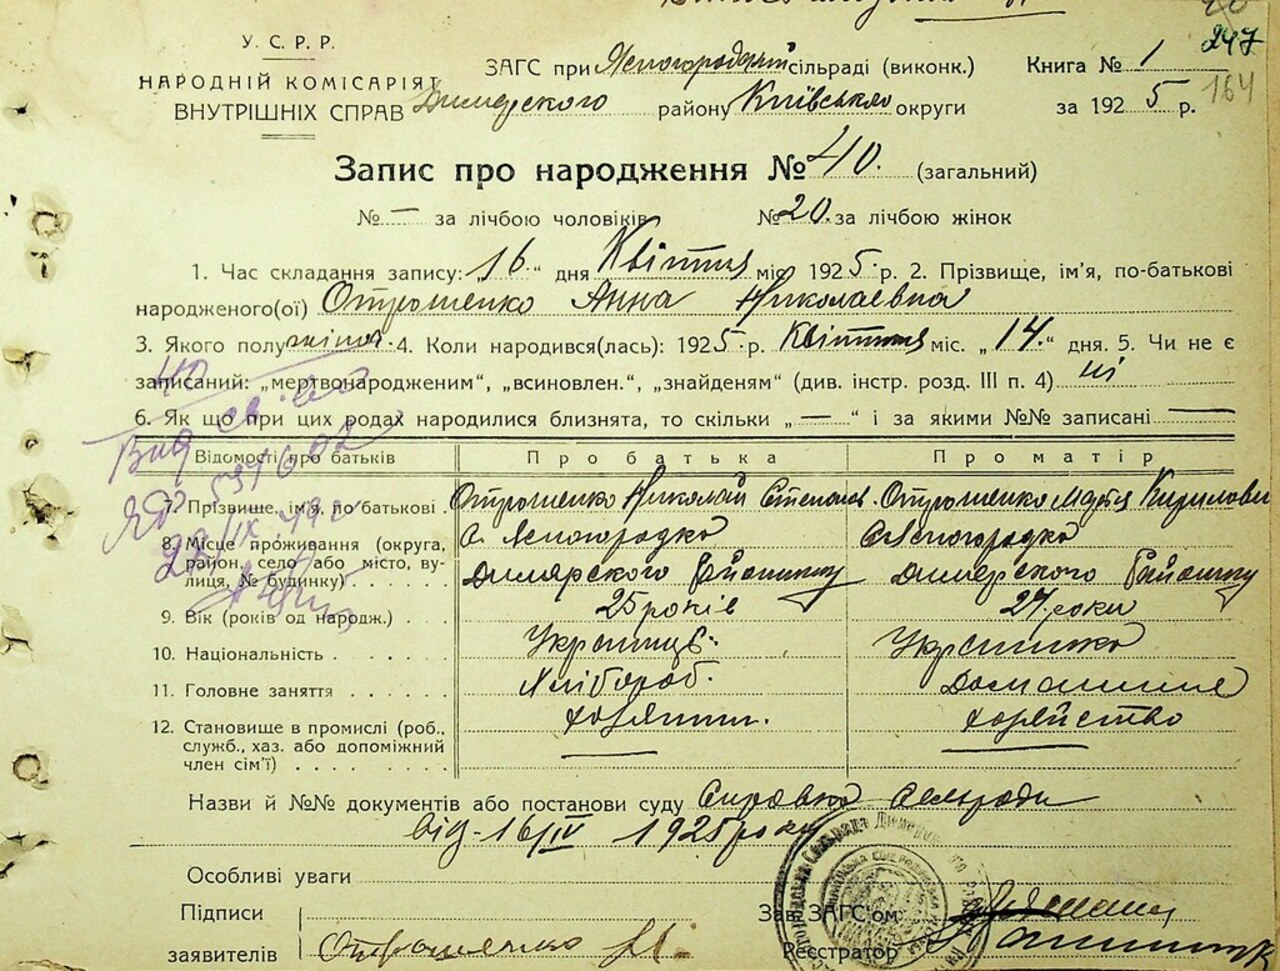 247
У. С. Р. Р.
НАРОДНІЙ КОМІСАРІЯТ
ВНУТРІШНІХ СПРАВ
164
ЗАГС при Ясногородській сільраді (виконк.) Книга № 1
Димерского району Київською округи за 1925 р.
Запис про народження № 40. (загальний)
№ — за лічбою чоловіків № 20. за лічбою жінок
1. Час складання запису: „16.“ дня Квітня міс. 1925 р. 2. Прізвище, ім’я, по-батькові
народженого(ої) Отрошенко Анна Николаевна
3. Якого полу жіноч. 4. Коли народився(лась): 1925 р. Квітня міс. „14.“ дня. 5. Чи не є
записаний: „мертвонародженим“, „всиновлен.“, „знайденям“ (див. інстр. розд. III п. 4) ні
6. Як що при цих родах народилися близнята, то скільки „—“ і за якими №№ записані —
Відомості про батьків Про батька Про матір
7. Прізвище, ім’я, по батькові . Отрошенко Николай Степанов. Отрошенко Мария Кирилови
8. Місце проживання (округа, район, село або місто, вулиця, № будинку) с. Ясногородка с. Ясногородка
Димерского Району Димерского Району
9. Вік (років од народж.) . . 25 років 27 роки
10. Національність . . . . . . Українець Українка
11. Головне заняття . . . . . . Хлібороб. Домашнє
12. Становище в промислі (роб., служб., хаз. або допоміжний член сім’ї) . . . . хозяин. хозяйство
Назви й №№ документів або постанови суду Справка Сельради
від - 16/IV 1925 року
Особливі уваги
Підписи
заявителів Отрошенко М.
Зав. ЗАГС’ом
Реєстратор